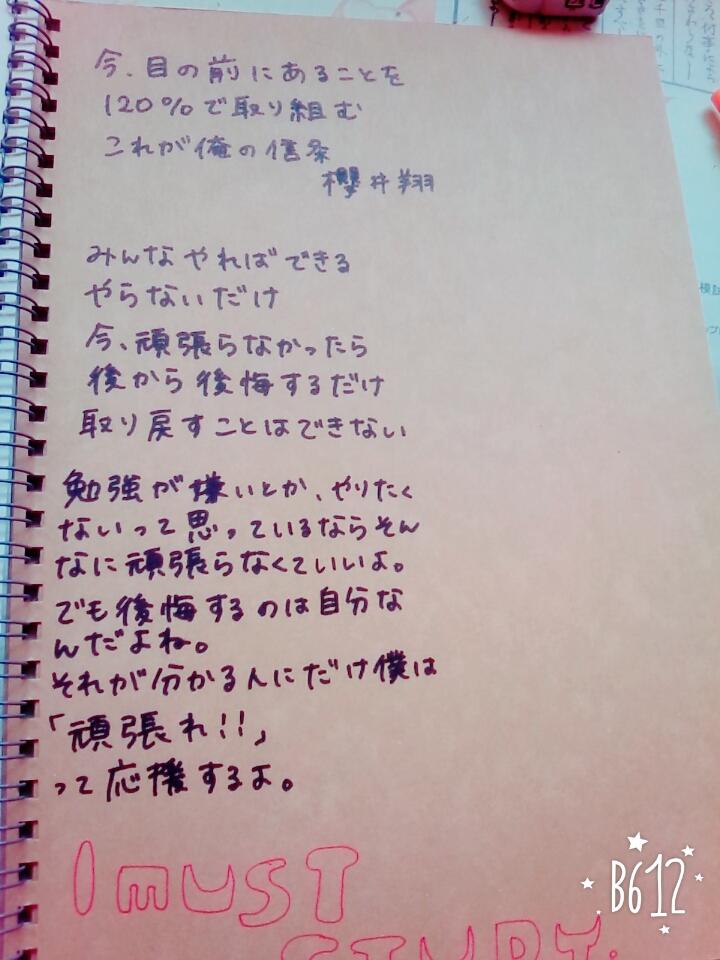 今、目の前にあることを
120%で取り組む
これが俺の信条
櫻井翔
みんなやればできる
やらないだけ
今、頑張らなかったら
後から後悔するだけ
取り戻すことはできない
勉強が嫌いとか、やりたく
ないって思っているならそん
なに頑張らなくていいよ。
でも後悔するのは自分な
んだよね。
それが分かる人にだけ僕は
「頑張れ!!」
って応援するよ。
I MUST
STUDY.
B612